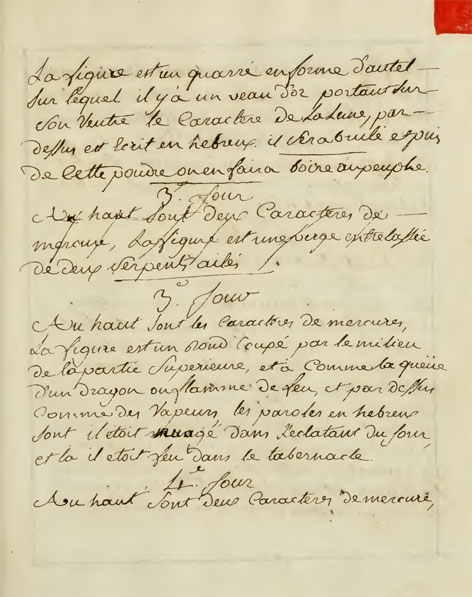 La figure est un quarré en forme d'autel —
sur lequel il y a un veau d'or portant sur
son Ventre le Caractere de La Lune, par —
dessus est Ecrit en hebreux. il sera brulé et puis
de Cette poudre on en faira boire au peuple.
3.e Jour
Au haut Sont deux Caracteres de —
mercure, La figure est une verge entrelassée
de deux serpents ailés
3.e Jour
Au haut Sont les Caracteres de mercures,
La figure est un Rond Coupé par le milieu
de la partie Superieure, et a Comme la queüe
d'un dragon ou flamme de feu, et par dessus
Comme des Vapeurs, les paroles en hebreux
sont il étoit nuagé dans l'eclatant du Jour,
et la il etoit feu dans le tabernacle
4.e Jour
Au haut Sont deux Caracteres de mercure,